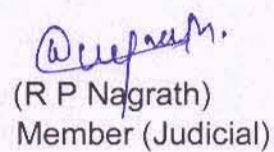 (R P Nagrath)
Member (Judicial)